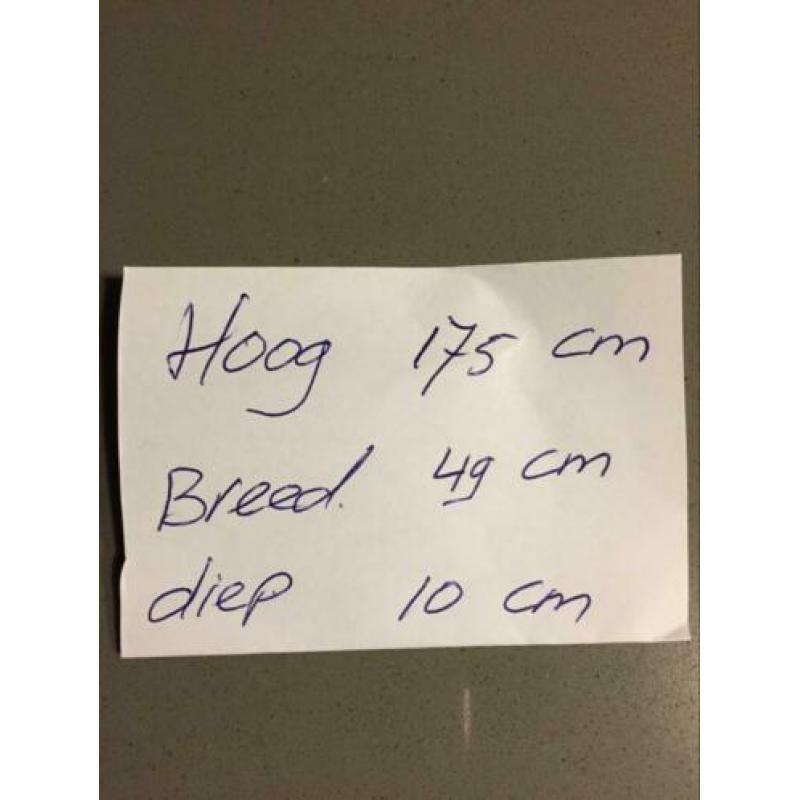 Hoog 175 cm
Breed. 49 cm
diep 10 cm